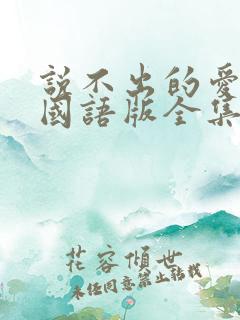 說不出的愛
國語版全集
花容傾世
未經同意禁止轉載